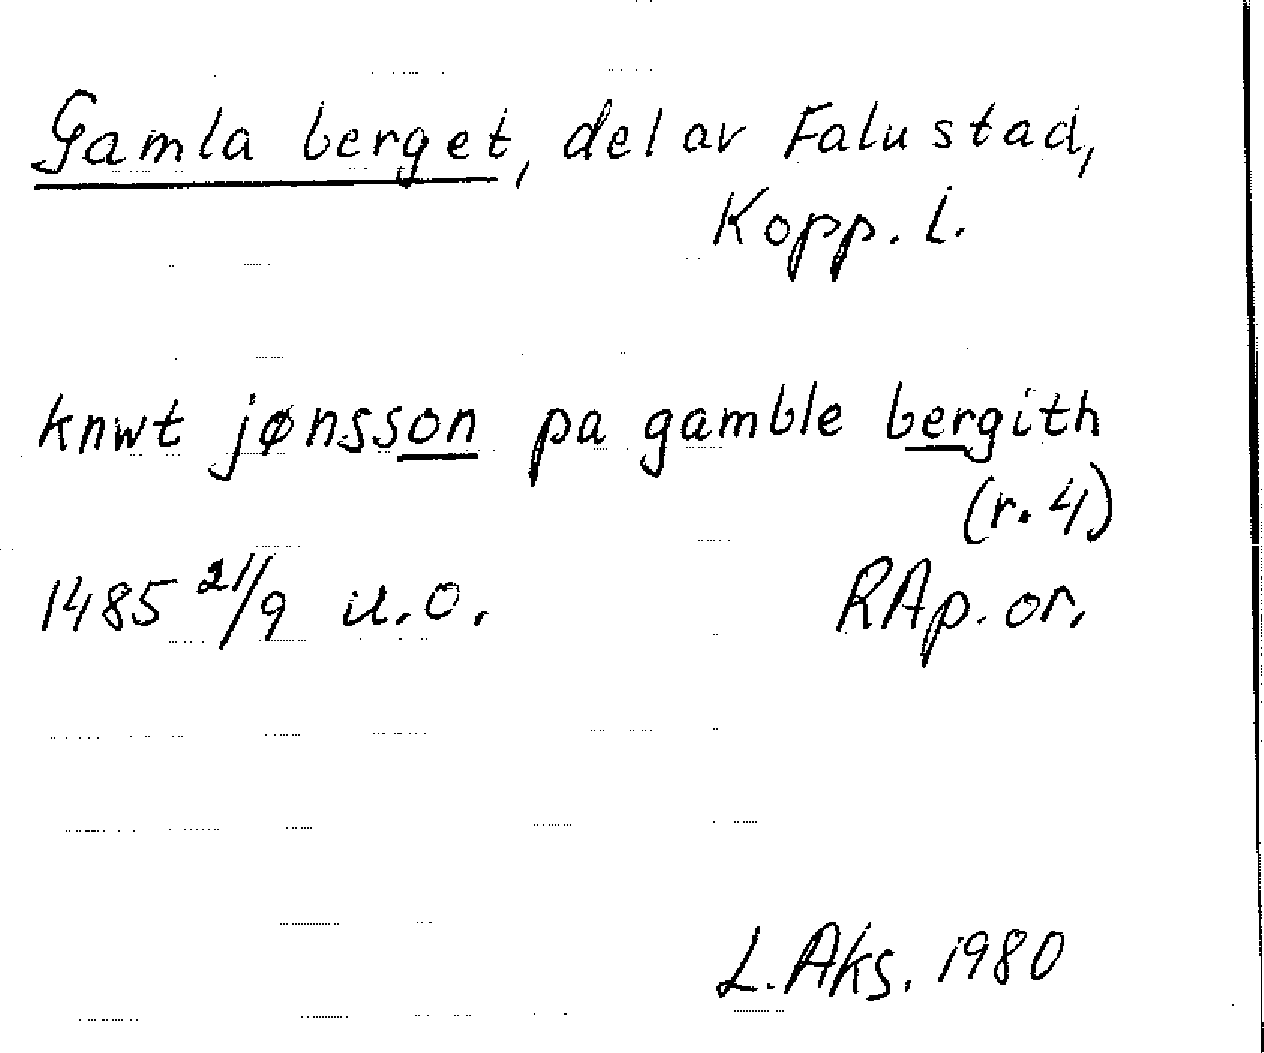 Gamla berget, del av Falu stad,
Kopp. l.
knwt jønsson pa gamble bergith
(r. 4)
1485 21/9 u.o. RAp. or.
L. Aks. 1980